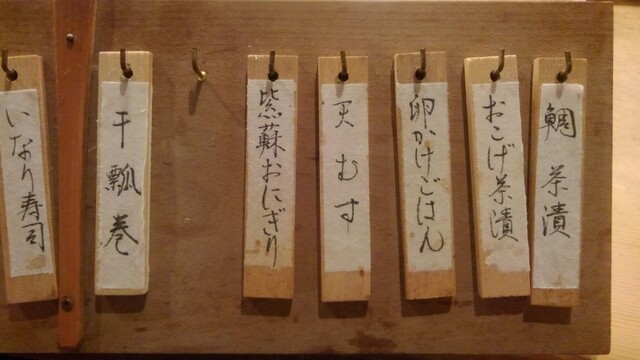 鯛茶漬
おこげ茶漬
卵かけごはん
天むす
紫蘇おにぎり
干瓢巻
いなり寿司